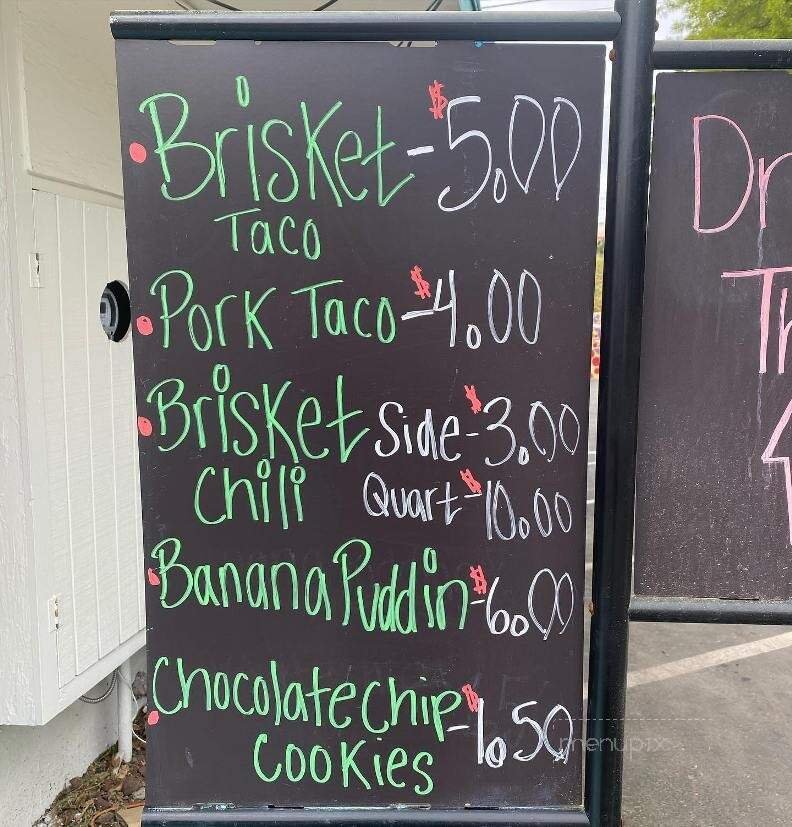 Brisket - $5.00
Taco
Pork Taco - $4.00
Brisket Side - $3.00
Chili Quart - $10.00
Banana Puddin - $6.00
Chocolate chip - $1.50
Cookies
menupix
Dr
Th